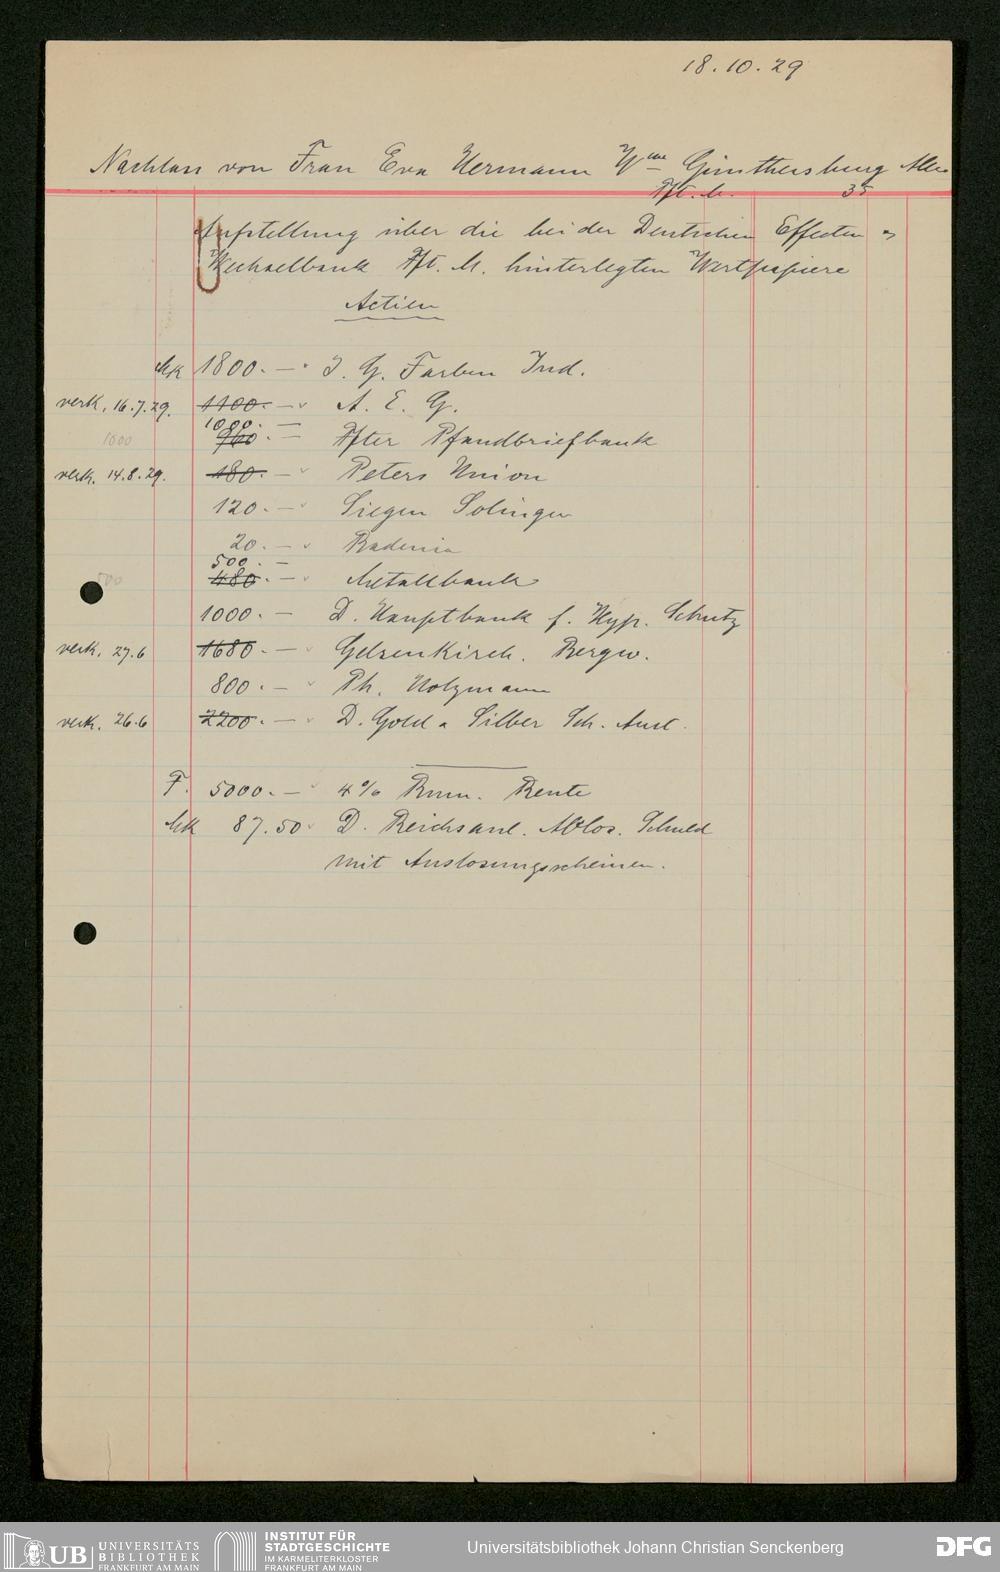 18.10.29
Nachlass von Frau Eva Hermann Wwe Günthersburg Allee
Fft. M. 35
Aufstellung über die bei der Deutschen Effecten u
Wechselbank Fft. M. hinterlegten Wertpapiere
Actien
Mk 1800.- I. G. Farben Ind.
verk. 16.7.29. 1100.- A. E. G.
1000.-
1000 960.- Ffter Pfandbriefbank
verk. 14.8.29. 180.- Peters Union
120.- Siegen Solingen
20.- Badenia
500.-
500 480.- Metallbank
1000.- D. Hauptbank f. Hyp. Schutz
verk. 27.6 1680.- Gelsenkirch. Bergw.
800.- Ph. Holzmann
verk. 26.6 2200.- D. Gold u Silber Sch. Anst.
F. 5000.- 4% Rum. Rente
Mk 87.50 D. Reichsanl. Ablös. Schuld
mit Auslosungsscheinen.
UB UNIVERSITÄTS
BIBLIOTHEK
FRANKFURT AM MAIN
INSTITUT FÜR
STADTGESCHICHTE
IM KARMELITERKLOSTER
FRANKFURT AM MAIN
Universitätsbibliothek Johann Christian Senckenberg
DFG